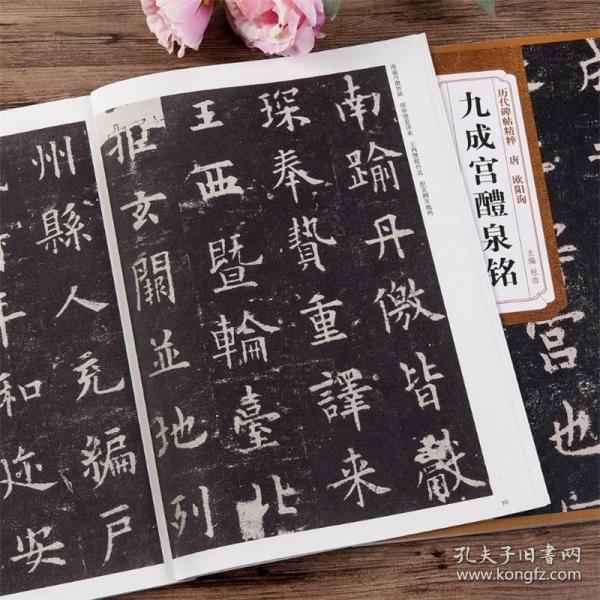 历代碑帖精粹 唐 欧阳询
九成宫醴泉铭
主编 杜浩
宫也
南踰丹徼皆獻
琛奉贄重譯來
王西暨輪臺北
拒玄闕並地列
州縣人充編戶
年和迩安
10
孔夫子旧书网
www.kongfz.com